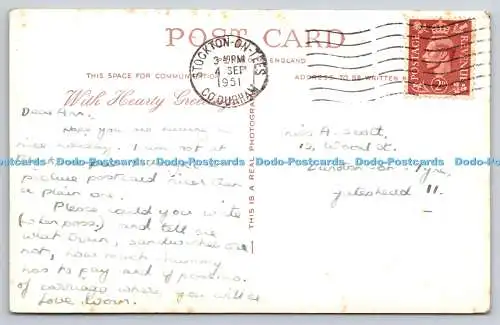 POST CARD
STOCKTON-ON-TEES
4 SEP
1951
CO. DURHAM
ENGLAND
POSTAGE REVENUE
THIS SPACE FOR COMMUNICATION
ADDRESS TO BE WRITTEN
With Hearty Greetings
THIS IS A REAL PHOTOGRAPH
Dear Ann,
Hope you are having
nice holiday. I am not at
picture postcard rather than
a plain one.
Please could you write
(when poss.) and tell me
what train, sandwiches or
not, how much money
has to pay and if possible
of carriage where you will
Love
Miss A. Scott,
15, Wood St.
Dunston-on-Tyne,
Gateshead 11.
Dodo-Postcards Dodo-Postcards Dodo-Postcards Dodo-Postcards Dodo-Postcards Dodo-Postcards